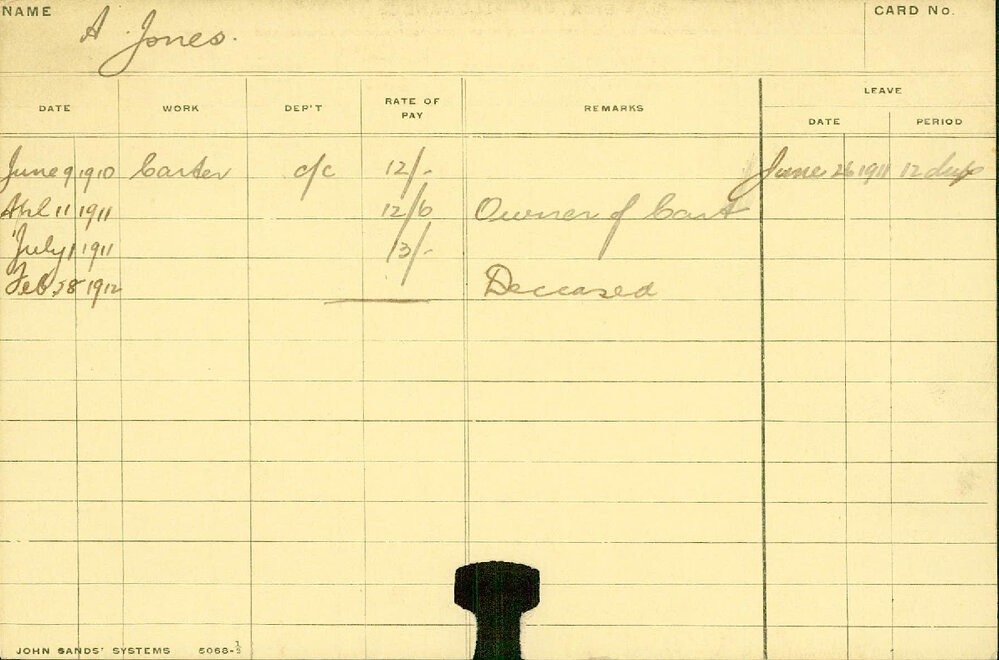 NAME A Jones. CARD No.
LEAVE
DATE WORK DEP'T RATE OF PAY REMARKS DATE PERIOD
June 9 1910 Carter c/c 12/- June 26 1911 12 days
Apl 11 1911 12/6 Owner of Cart
July 1 1911 13/-
Feb 28 1912 Deceased
JOHN SANDS' SYSTEMS 5068-½